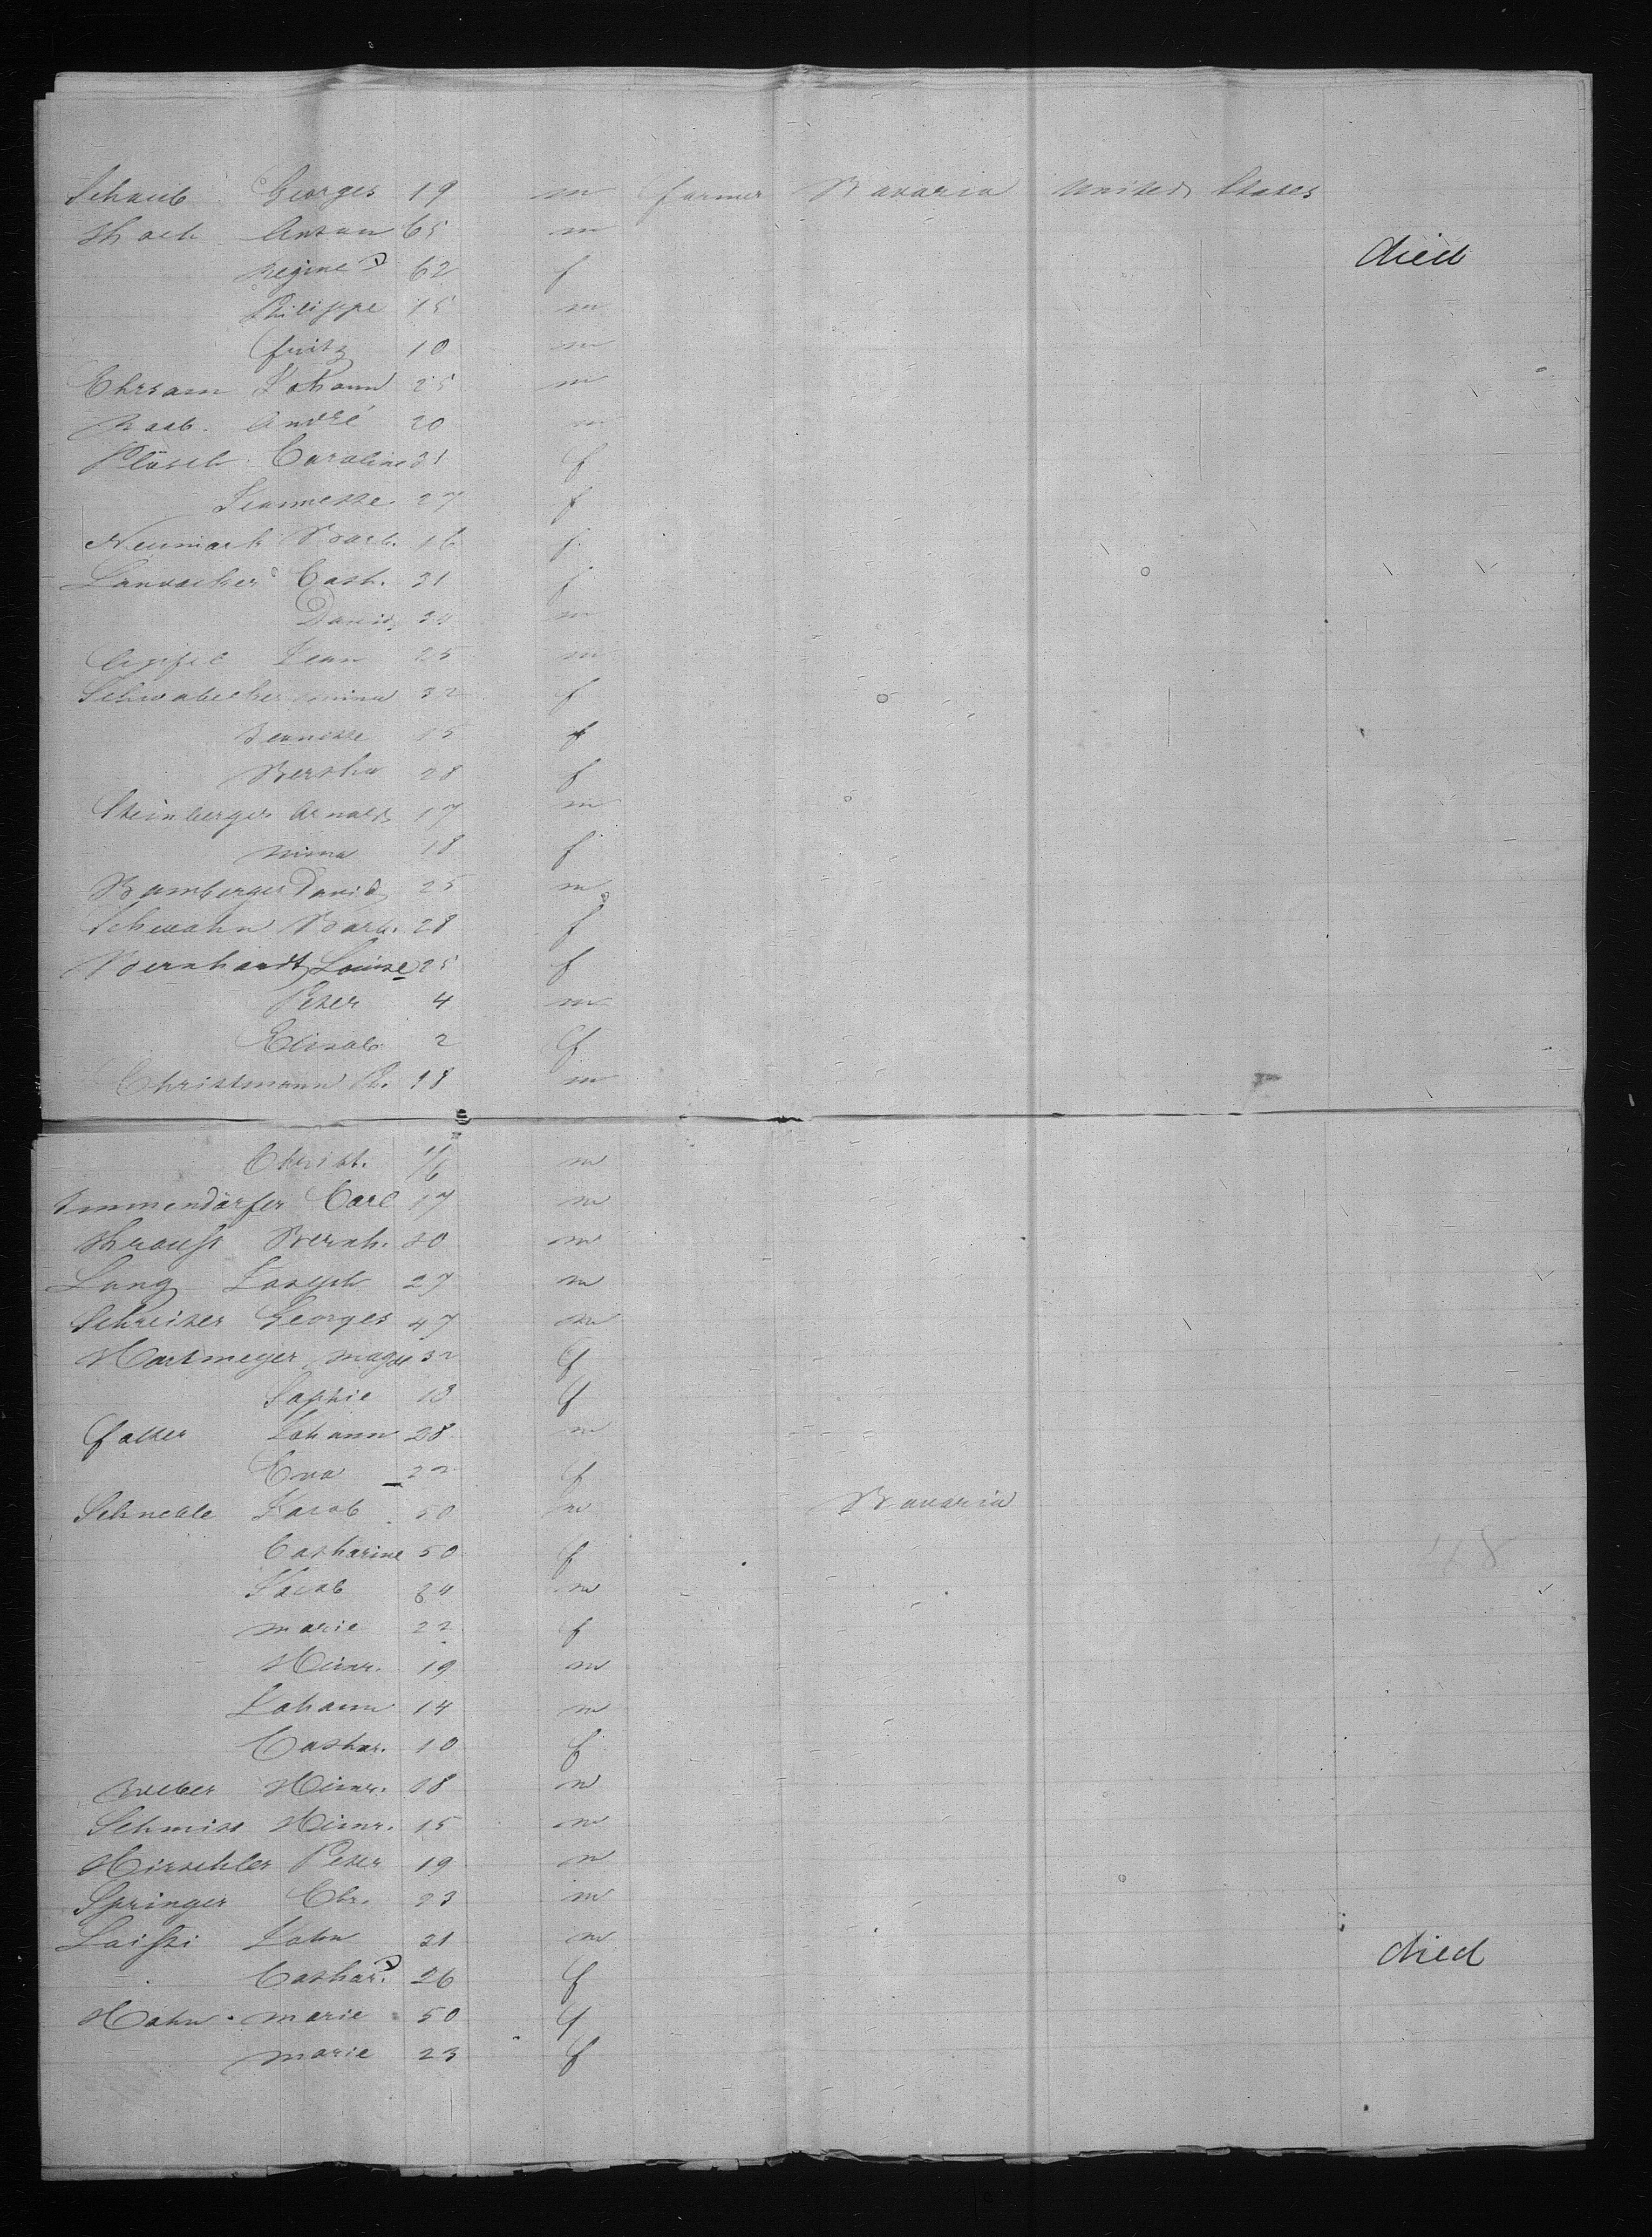 Schaub Georges 19 m farmer Bavaria United States
Koch Anton 65 m
Regine 62 f died
Philippe 15 m
Fritz 10 m
Ehrsam Johann 25 m
Raab André 20 m
Plösch Caroline 31 f
Jeannette 27 f
Neumark Barb. 16 f
Landacker Cath. 31 f
David m
Jean 25 m
Schwabecher Mina 32 f
Jeanette 15 f
Bertha 28 f
Steinberger Arnold 17 m
Mina 18 f
Bamberger David 25 m
Schwahn Barb. 28 f
Bernhardt Louise 25 f
Peter 4 m
Elisab. 2 f
Christmann Ph. 18 m
Christ. m
Immendörfer Carl 17 m
Krauss Bernh. m
Lang Joseph 27 m
Schreiter Georges 47 m
Hartmeyer Magd 32 f
Sophie 18 f
Falter Johann 28 m
Eva 22 f
Schneble Jacob 50 m Bavaria
Catharine 50 f
Jacob m
Marie 22 f
Heinr. 19 m
Johann 14 m
Cathar. 10 f
Weber Heinr. 18 m
Schmitt Heinr. 15 m
Hirschler Peter 19 m
Springer Chr. 23 m
John 31 m
Cathar. 26 f died
Hahn Marie 50 f
Marie 23 f